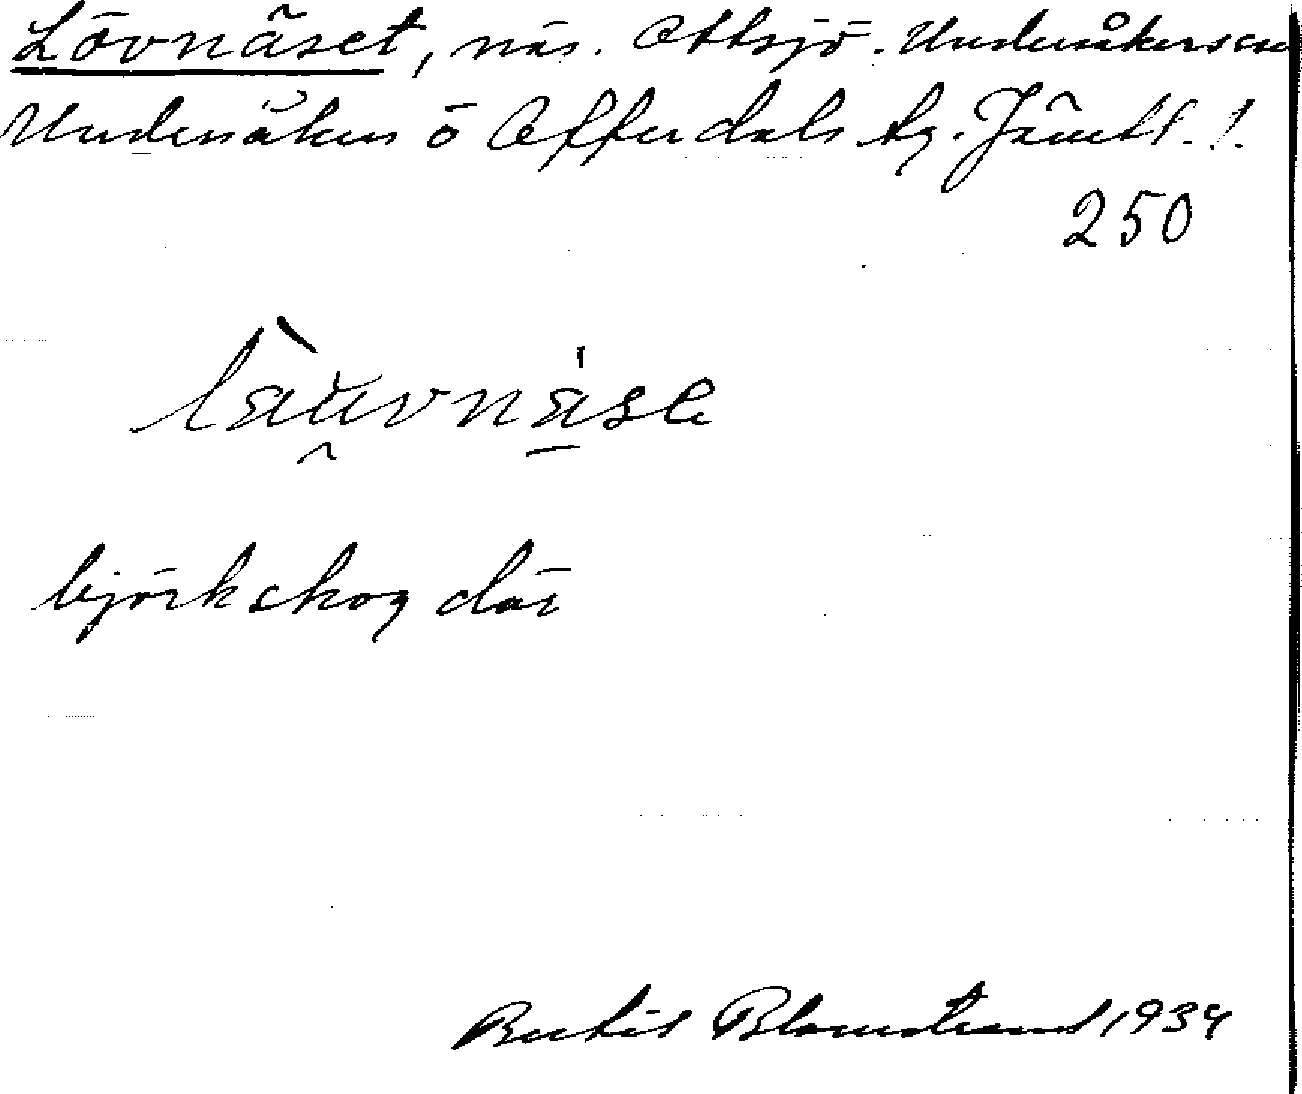 Lövnäset, näs. Ottsjö. Undersåkers sn
Undersåkers o Offerdals tg. Jämtl. l.
250
làuvnäse
björkskog där
Bertil Blomstrand 1934